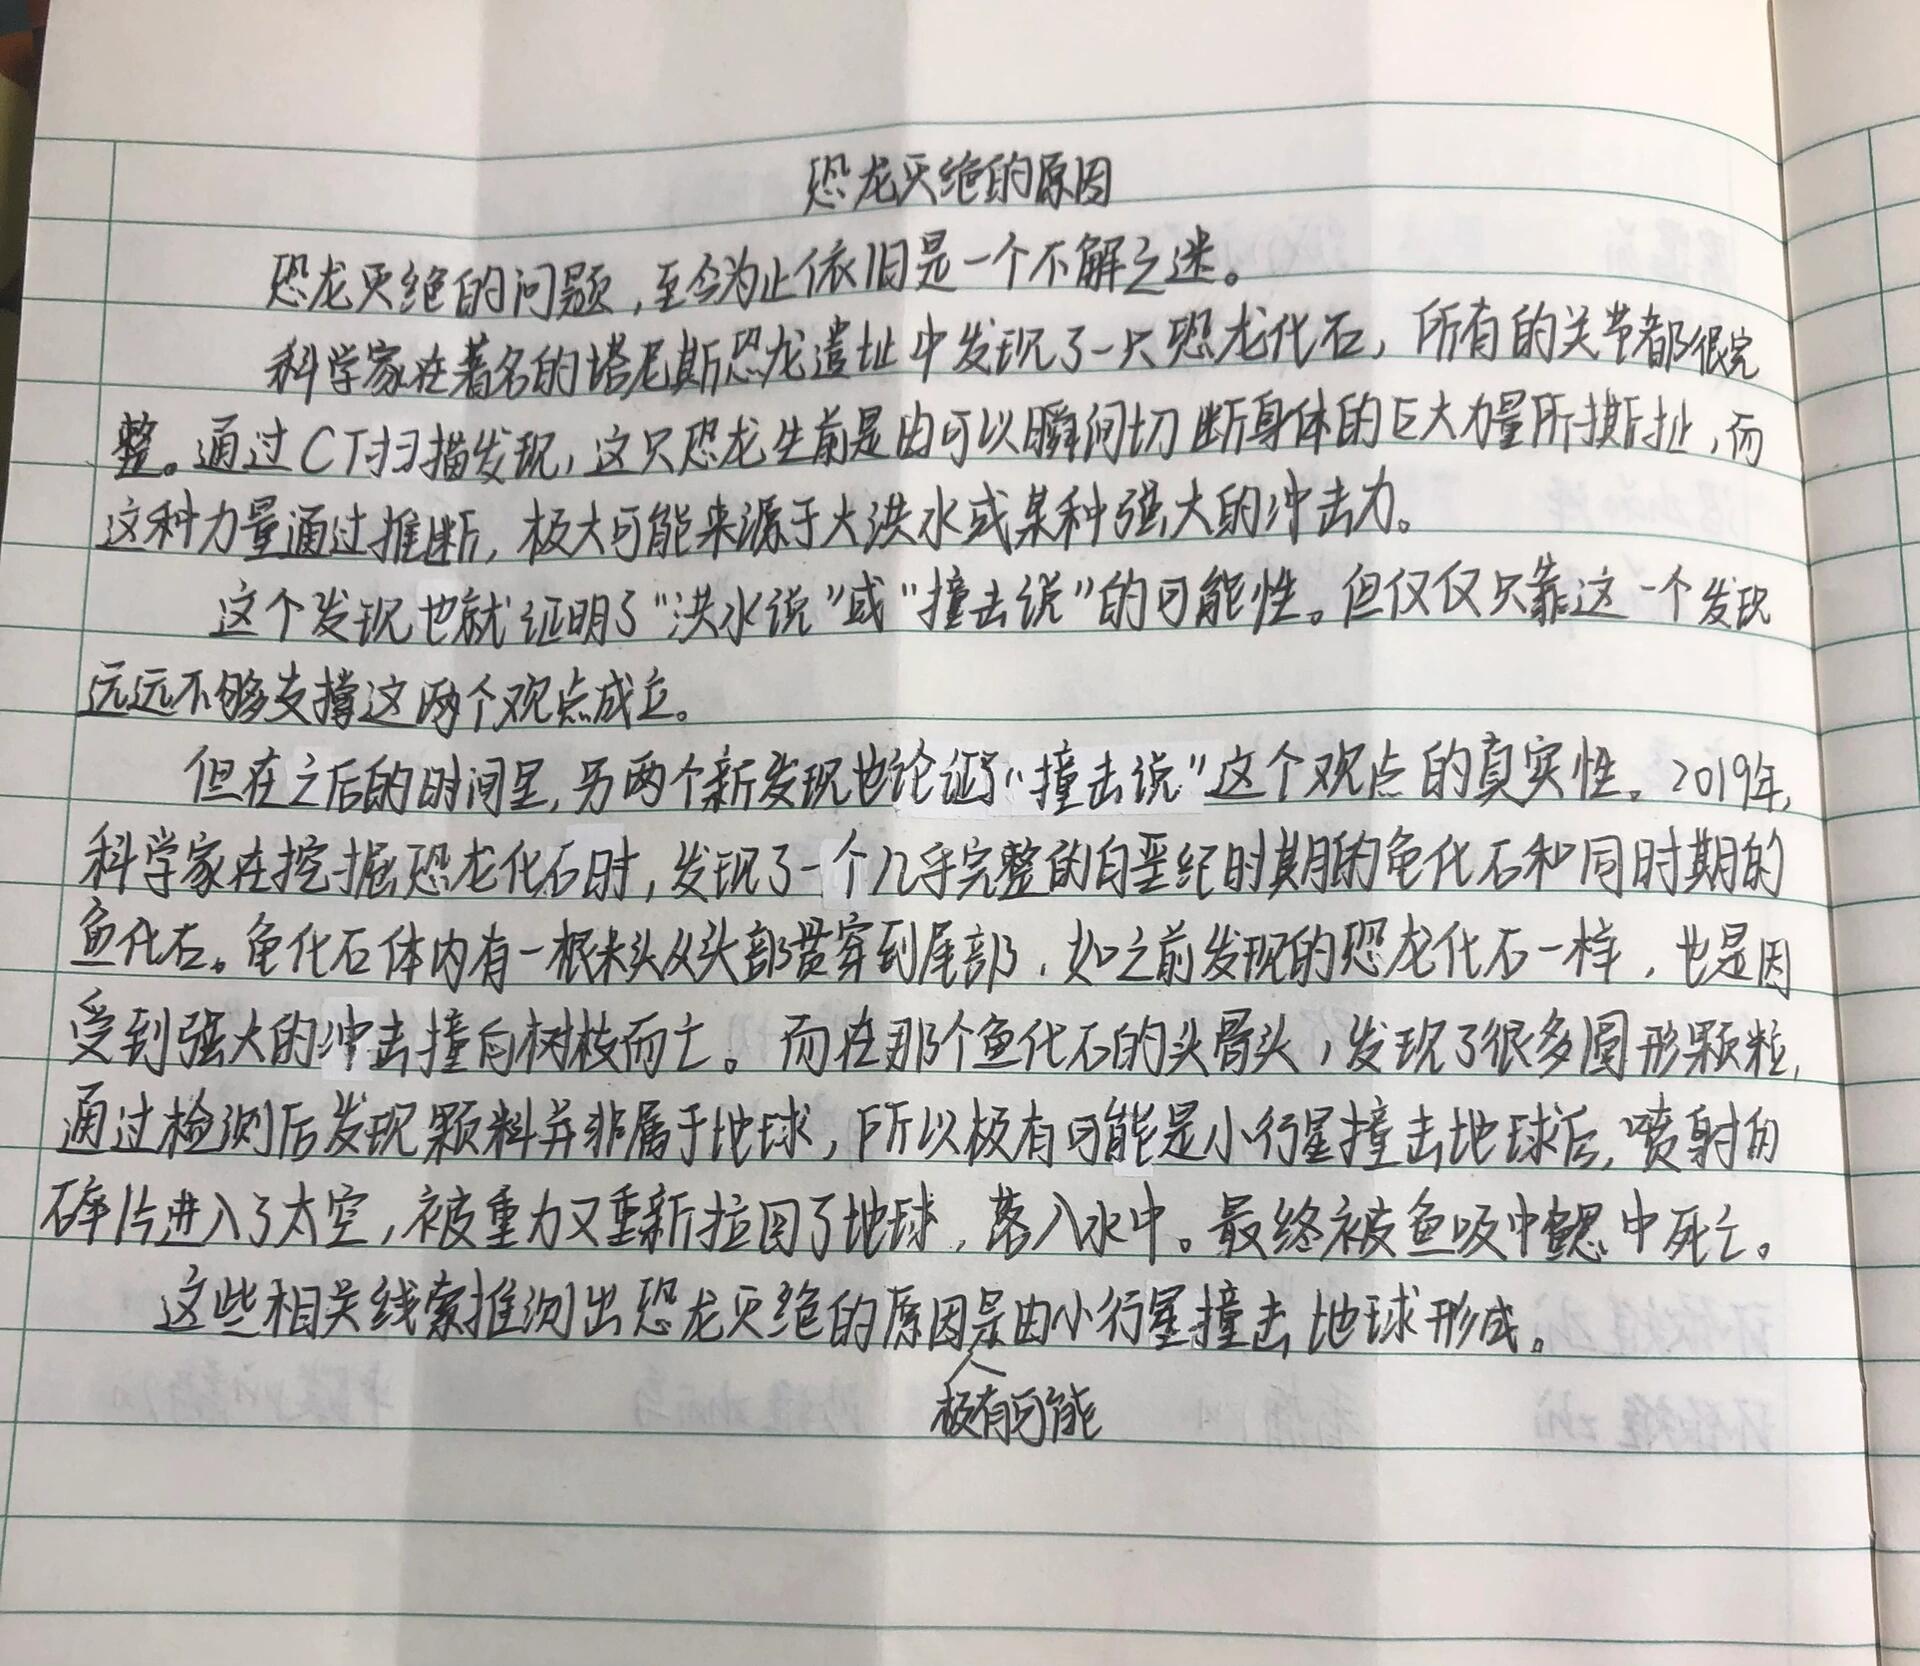 恐龙灭绝的原因
恐龙灭绝的问题，至今为止依旧是一个不解之迷。
科学家在著名的塔尼斯恐龙遗址中发现了一只恐龙化石，所有的关节都很完
整。通过CT扫描发现，这只恐龙生前是由可以瞬间切断身体的巨大力量所撕扯，而
这种力量通过推断，极大可能来源于大洪水或某种强大的冲击力。
这个发现也就证明了“洪水说”或“撞击说”的可能性。但仅仅只靠这一个发现
远远不够支撑这两个观点成立。
但在之后的时间里，另两个新发现也论证了“撞击说”这个观点的真实性。2019年，
科学家在挖掘恐龙化石时，发现了一个几乎完整的白垩纪时期的龟化石和同时期的
鱼化石。龟化石体内有一根木头从头部贯穿到尾部，如之前发现的恐龙化石一样，也是因
受到强大的冲击撞向树枝而亡。而在那个鱼化石的头骨头，发现了很多圆形颗粒，
通过检测后发现颗料并非属于地球，所以极有可能是小行星撞击地球后，喷射的
碎片进入了太空，被重力又重新拉回了地球，落入水中。最终被鱼吸中鳃中死亡。
这些相关线索推测出恐龙灭绝的原因是由小行星撞击地球形成。
极有可能